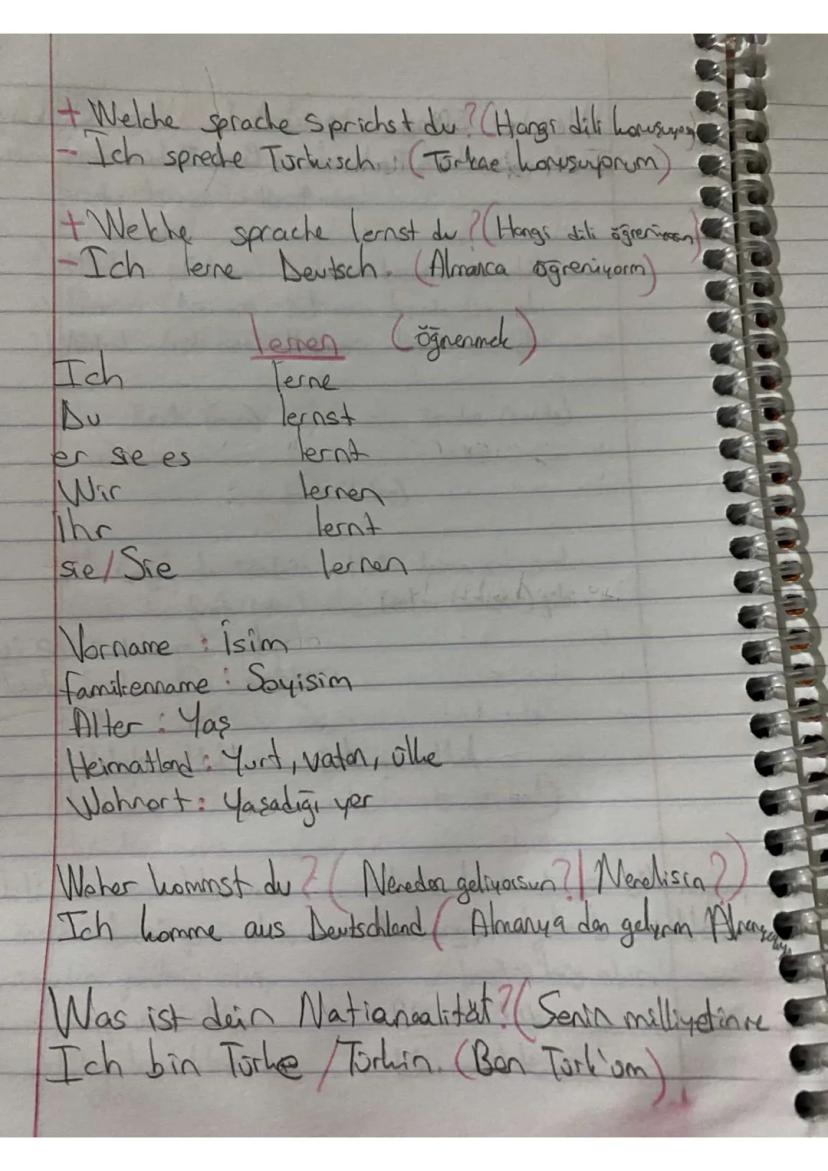 + Welche sprache sprichst du? (Hangi dili konuşuyon
- Ich spreche Türkisch. (Türkçe konuşuyorum)
+ Welche sprache lernst du? (Hangi dili öğreniyon)
- Ich lerne Deutsch. (Almanca öğreniyorm)
lernen (öğrenmek)
Ich lerne
Du lernst
er sie es lernt
Wir lernen
Ihr lernt
sie/Sie lernen
Vorname : İsim
familienname : Soyisim
Alter : Yaş
Heimatland : Yurt, vatan, ülke
Wohnort : Yaşadığı yer
Woher kommst du? (Nereden geliyorsun? / Nerelisin?)
Ich komme aus Deutschland (Almanya dan gelyrm
Was ist dein Natianaalität? (Senin milliyetin ne
Ich bin Türke / Türkin. (Ben Türk'üm)